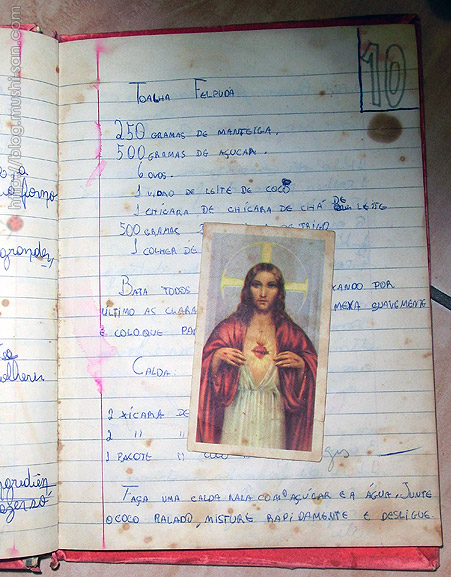 10
TOALHA FELPUDA
250 GRAMAS DE MANTEIGA.
500 GRAMAS DE AÇUCAR.
6 OVOS.
1 VIDRO DE LEITE DE COCO
1 CHÍCARA DE CHÁ DE LEITE
500 GRAMAS TRIGO
1 COLHER DE
BATA TODOS CANDO POR
ULTIMO AS CLARA MEXA SUAVEMENTE
E COLOQUE PA
CALDA:
2 XÍCARA DE
2 " "
1 PACOTE " COCO
FAÇA UMA CALDA RALA COM O AÇÚCAR E A ÁGUA. JUNTE
O COCO RALADO, MISTURE RAPIDAMENTE E DESLIGUE.
a
o forno
grandes,
olheres
ngrediên
http://blog.mushi-san.com